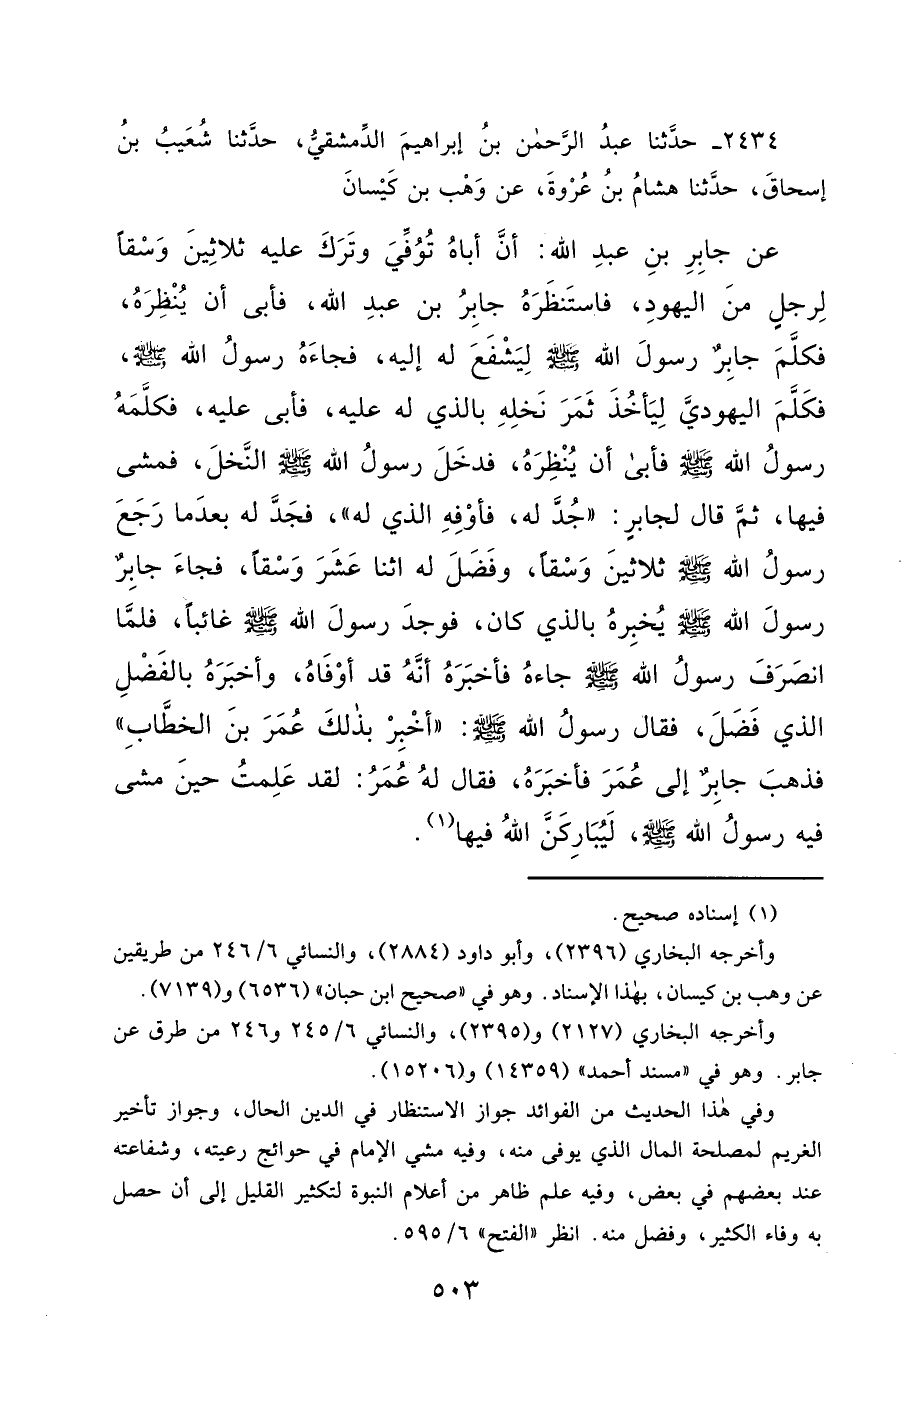 ٢٤٣٤ـ حدَّثنا عبدُ الرَّحمٰن بنُ إبراهيمَ الدِّمشقيُّ، حدَّثنا شُعَيبُ بنُ
إسحاقَ، حدَّثنا هشامُ بنُ عُرْوةَ، عن وَهْب بن كَيْسانَ
عن جابِرِ بنِ عبدِ الله: أنَّ أباهُ تُوُفِّيَ وتَرَكَ عليه ثلاثِينَ وَسْقاً
لِرجلٍ منَ اليهودِ، فاستَنظَرَهُ جابِرُ بن عبدِ الله، فأبى أن يُنْظِرَهُ،
فكلَّمَ جابِرٌ رسولَ الله ﷺ لِيَشْفَعَ له إليه، فجاءَهُ رسولُ الله ﷺ،
فكَلَّمَ اليهوديَّ لِيَأخُذَ ثَمَرَ نَخلِهِ بالذي له عليه، فأبى عليه، فكلَّمَهُ
رسولُ الله ﷺ فأبىٰ أن يُنْظِرَهُ، فدخَلَ رسولُ الله ﷺ النَّخلَ، فمشى
فيها، ثمَّ قال لجابرٍ: «جُدَّ له، فأوْفِهِ الذي له»، فجَدَّ له بعدَما رَجَعَ
رسولُ الله ﷺ ثلاثينَ وَسْقاً، وفَضَلَ له اثنا عَشَرَ وَسْقاً، فجاءَ جابِرٌ
رسولَ الله ﷺ يُخبِرهُ بالذي كان، فوجدَ رسولَ الله ﷺ غائباً، فلمَّا
انصَرَفَ رسولُ الله ﷺ جاءهُ فأخبَرَهُ أنَّهُ قد أوْفَاهُ، وأخبَرَهُ بالفَضْلِ
الذي فَضَلَ، فقال رسولُ الله ﷺ: «أخْبِرْ بذٰلكَ عُمَرَ بنَ الخطَّابِ»
فذهبَ جابِرٌ إلى عُمَرَ فأخبَرَهُ، فقال لهُ عُمَرُ: لقد عَلِمتُ حينَ مشى
فيه رسولُ الله ﷺ، لَيُبَارِكَنَّ اللهُ فيها(١).
(١) إسناده صحيح.
وأخرجه البخاري (٢٣٩٦)، وأبو داود (٢٨٨٤)، والنسائي ٢٤٦/٦ من طريقين
عن وهب بن كيسان، بهٰذا الإسناد. وهو في «صحيح ابن حبان» (٦٥٣٦) و(٧١٣٩).
وأخرجه البخاري (٢١٢٧) و(٢٣٩٥)، والنسائي ٢٤٥/٦ و٢٤٦ من طرق عن
جابر. وهو في «مسند أحمد» (١٤٣٥٩) و(١٥٢٠٦).
وفي هٰذا الحديث من الفوائد جواز الاستنظار في الدين الحال، وجواز تأخير
الغريم لمصلحة المال الذي يوفى منه، وفيه مشي الإمام في حوائج رعيته، وشفاعته
عند بعضهم في بعض، وفيه علم ظاهر من أعلام النبوة لتكثير القليل إلى أن حصل
به وفاء الكثير، وفضل منه. انظر «الفتح» ٥٩٥/٦.
٥٠٣